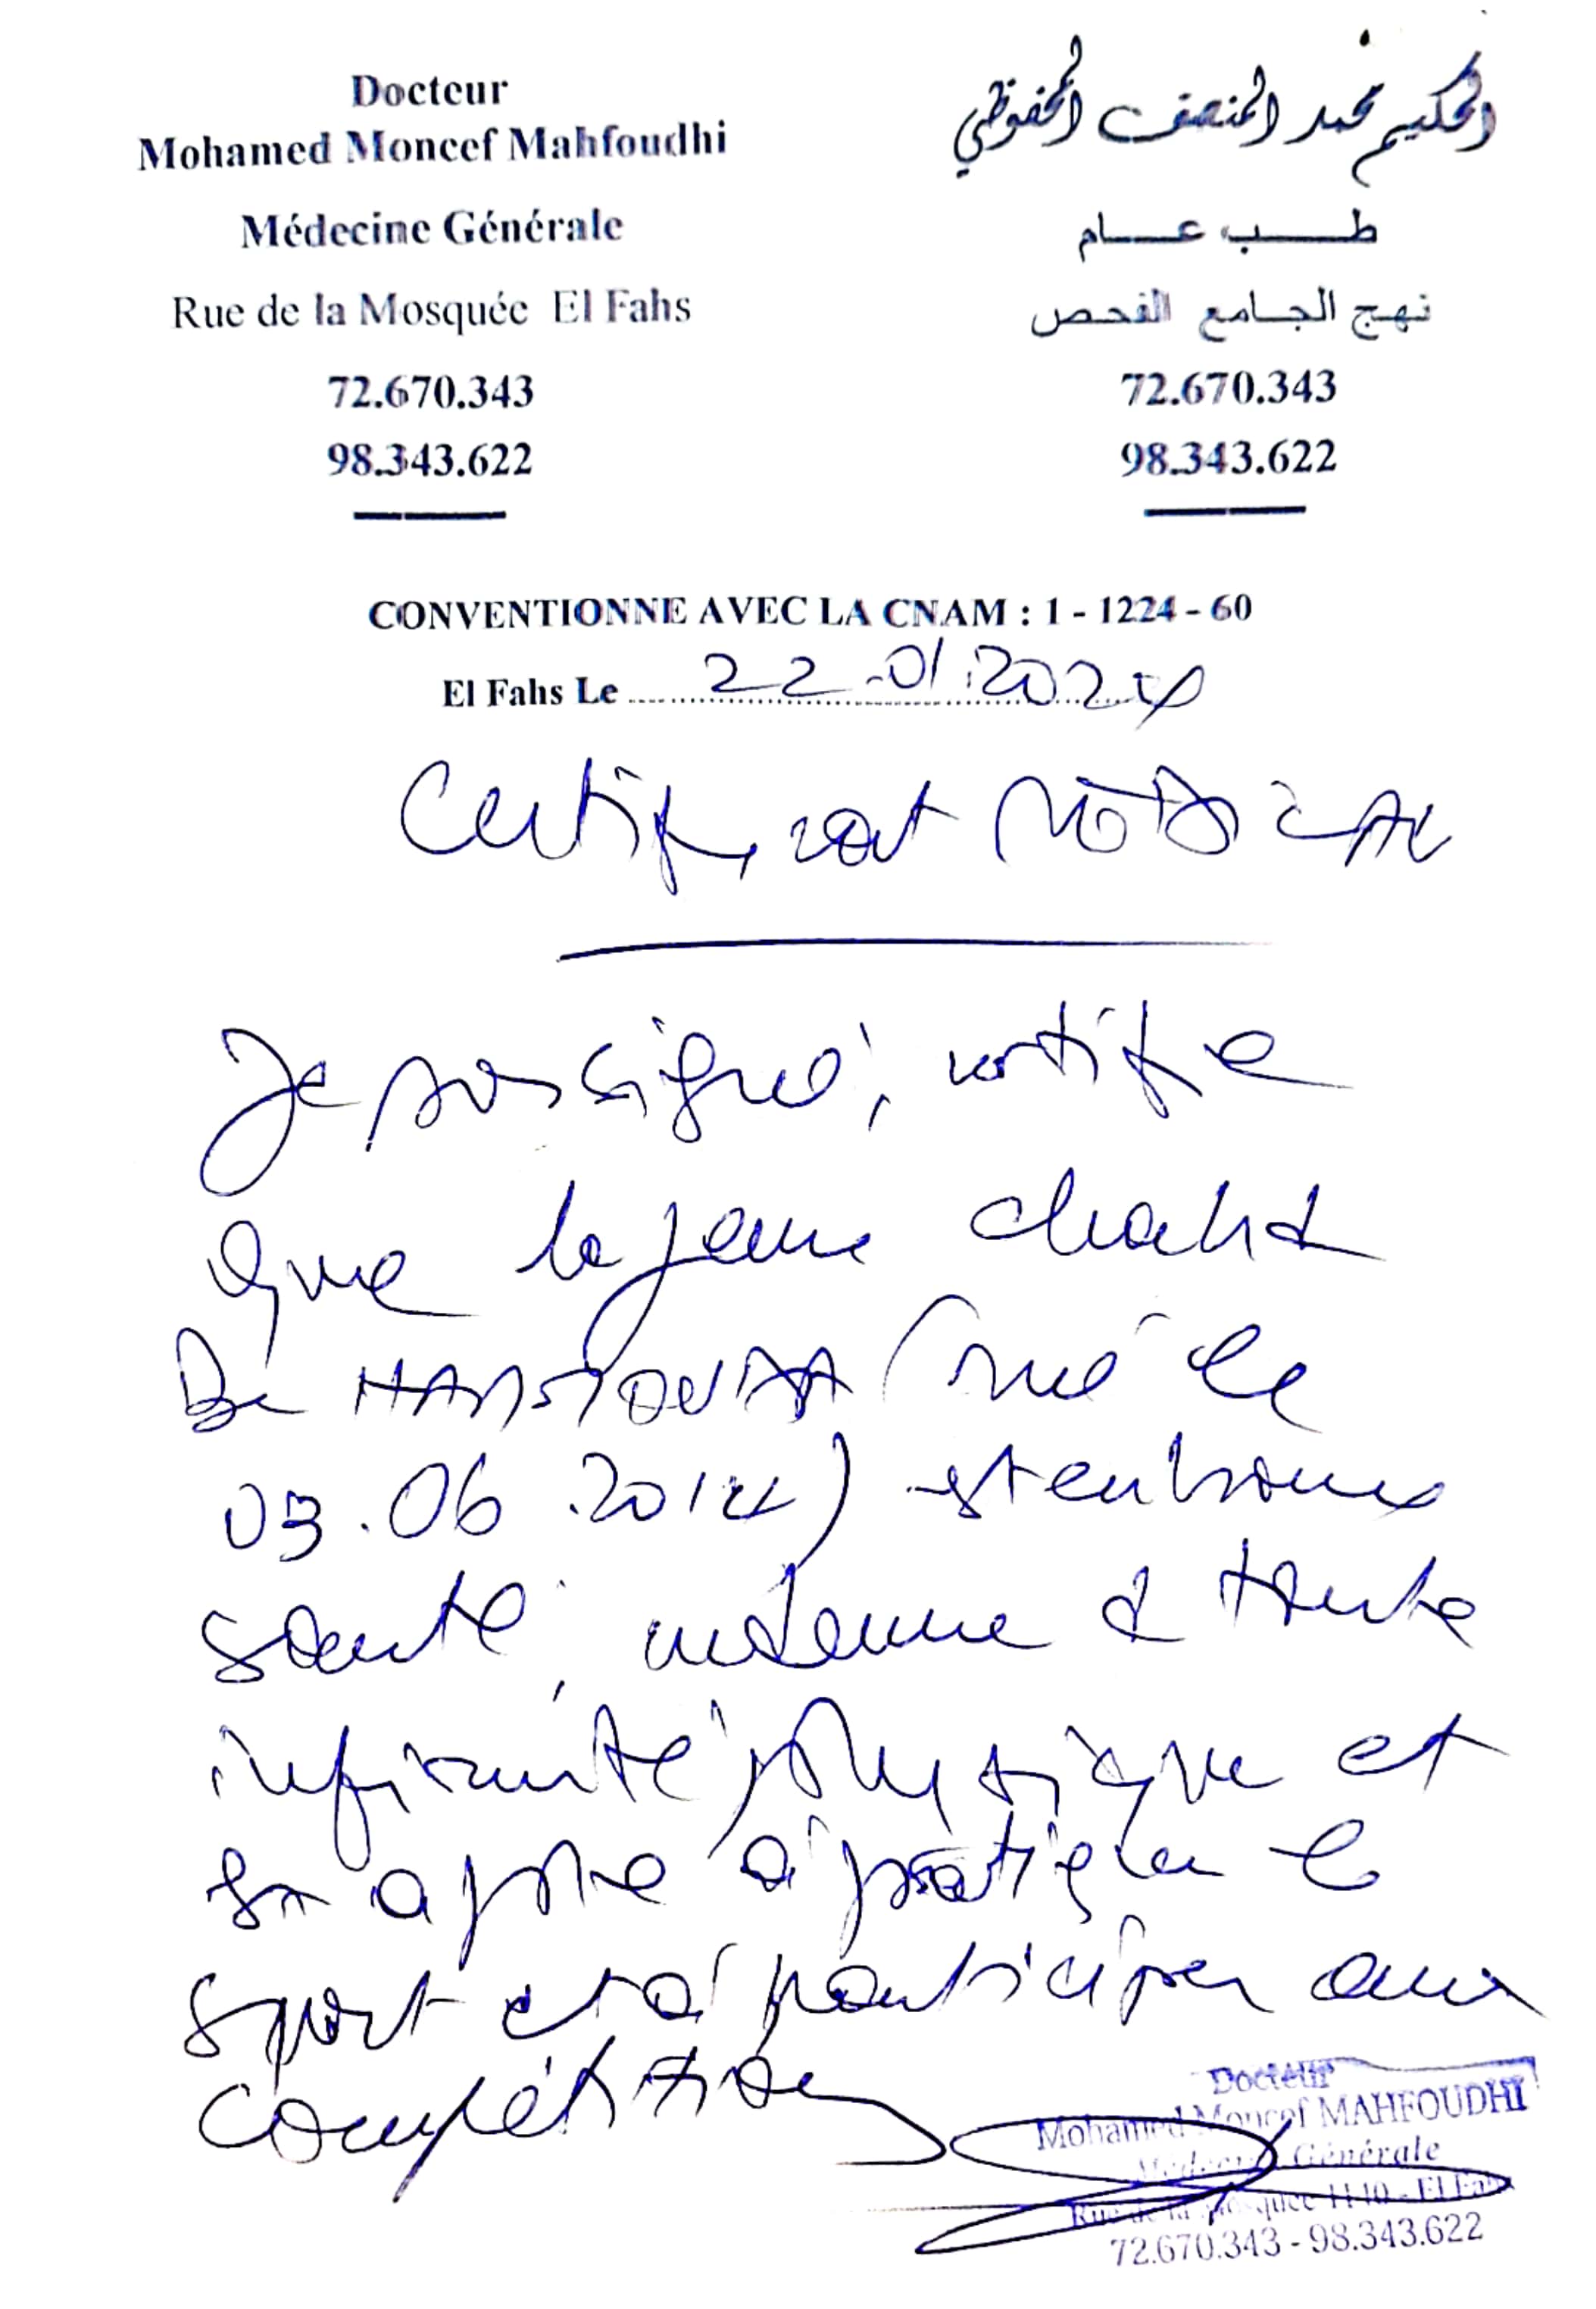 Docteur
Mohamed Moncef Mahfoudhi
Médecine Générale
Rue de la Mosquée El Fahs
72.670.343
98.343.622
الحكيم محمد المنصف المحفوظي
طب عام
نهج الجامع الفحص
72.670.343
98.343.622
CONVENTIONNE AVEC LA CNAM : 1 - 1224 - 60
El Fahs Le 22.01.202
Certificat MEDICAL
Je soussigné, certifie
que le jeune
Be (né le
03.06.2014) est en bonne
santé, indemne de toute
infirmité physique et
est apte à pratiquer le
sport et à participer aux
compétitions
Docteur
Mohamed Moncef MAHFOUDHI
Médecine Générale
Rue de la Mosquée 1140 - El Fahs
72.670.343 - 98.343.622